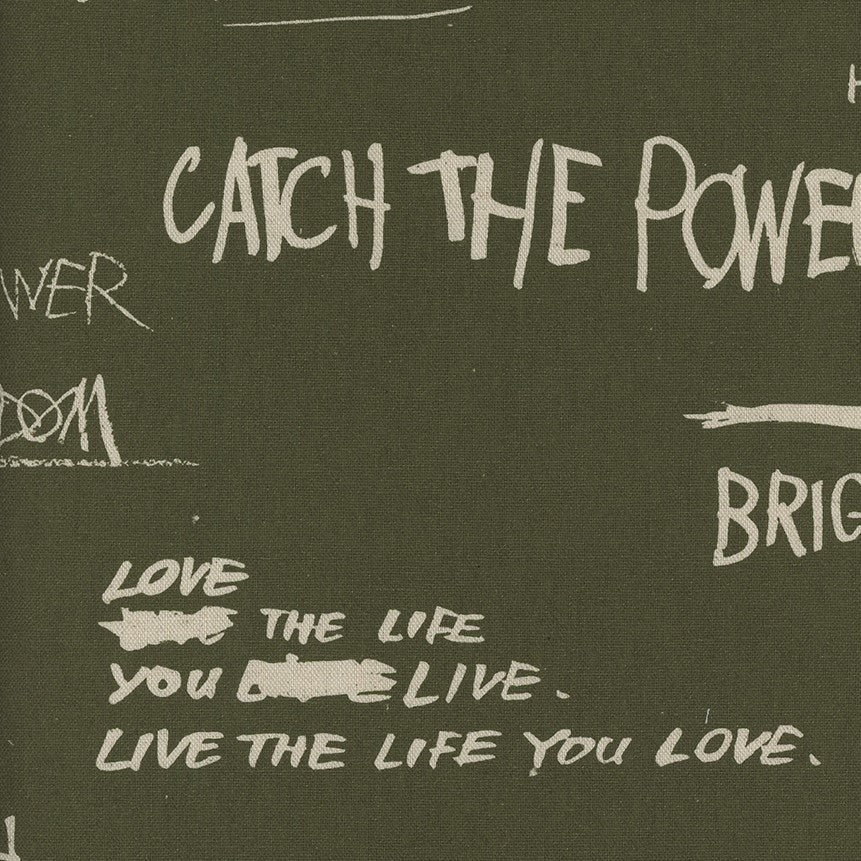 CATCH THE POWE
WER
DOM
BRIG
LOVE
THE LIFE
YOU LIVE.
LIVE THE LIFE YOU LOVE.